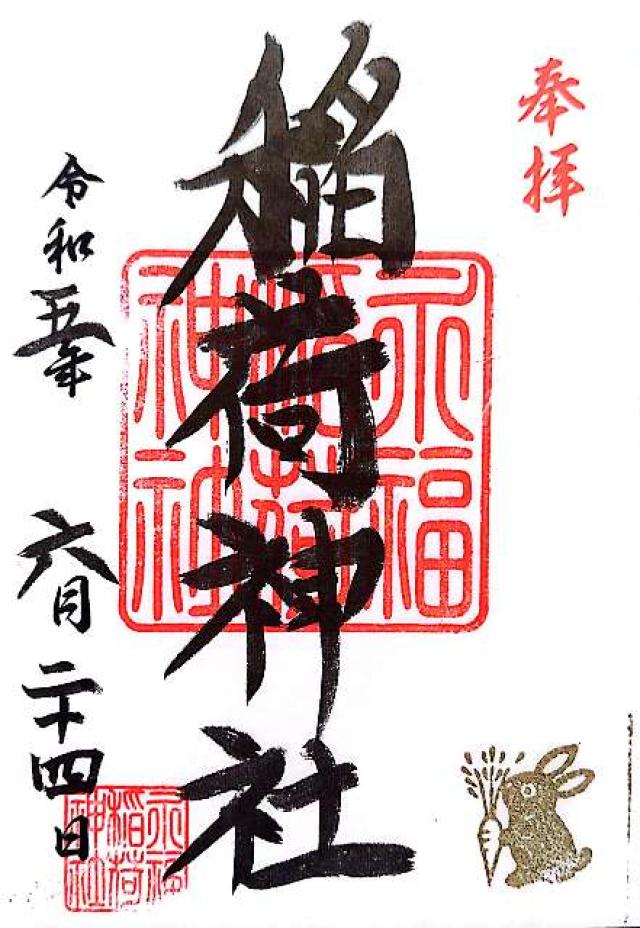 奉拝
稲荷神社
令和五年 六月二十四日
永福
稲荷
神社
永福
稲荷
神社